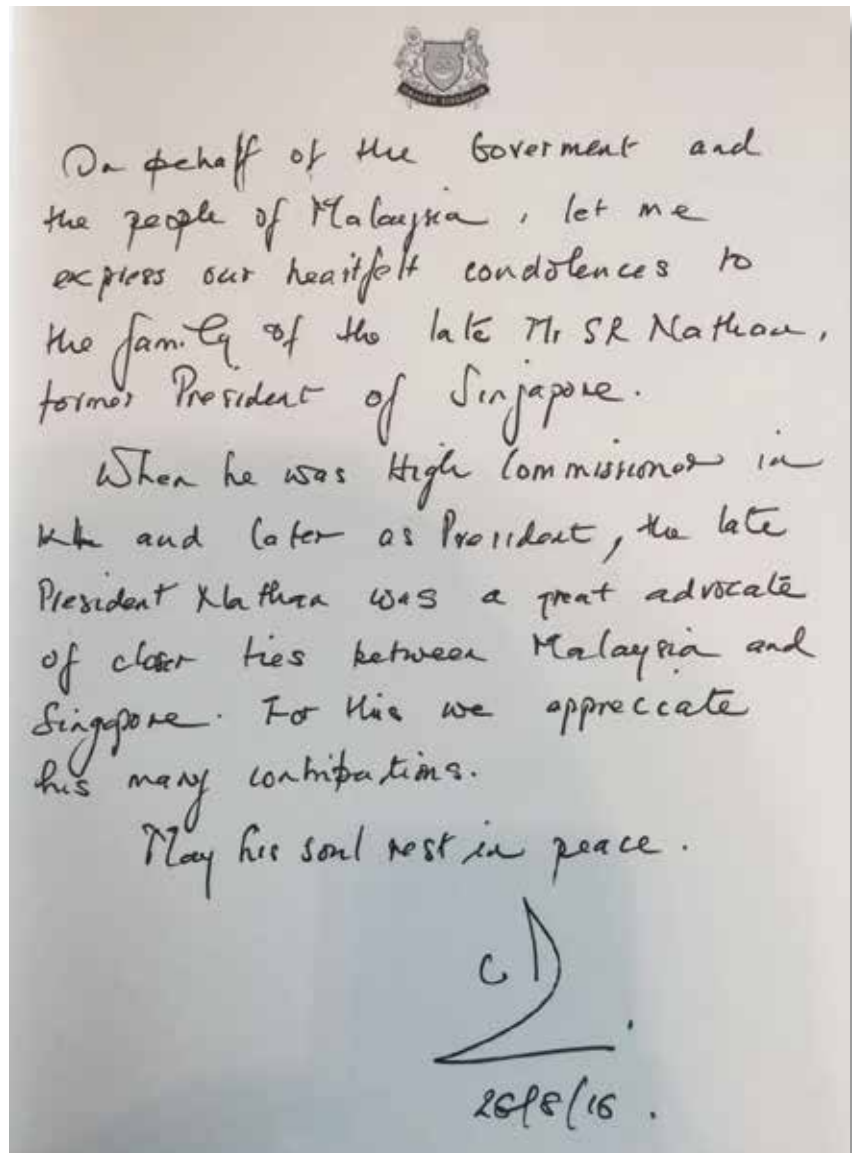 On behalf of the Goverment and
the people of Malaysia, let me
express our heartfelt condolences to
the family of the late Mr SR Nathan,
former President of Singapore.
When he was High Commissioner in
KL and later as President, the late
President Nathan was a great advocate
of closer ties between Malaysia and
Singapore. For this we appreciate
his many contributions.
May his soul rest in peace.
26/8/16.